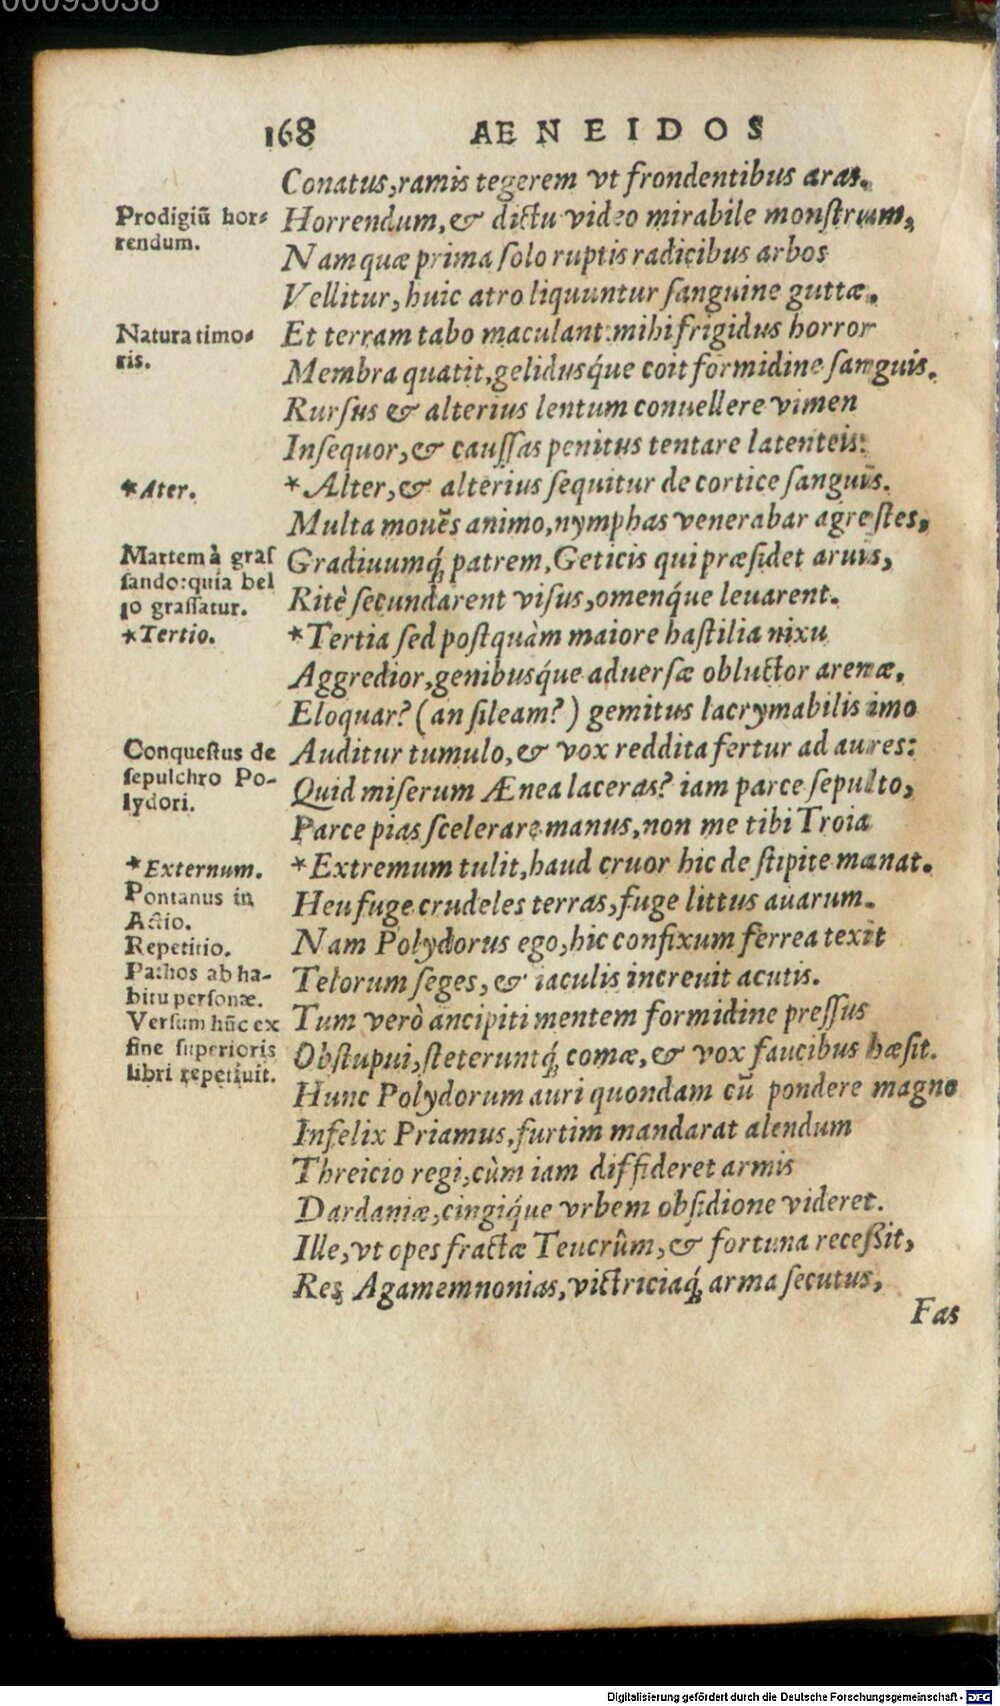 00093038
168 AENEIDOS
Conatus, ramis tegerem vt frondentibus aras.
Prodigiũ hor-
rendum.
Horrendum, & dictu video mirabile monſtrum,
Nam quæ prima ſolo ruptis radicibus arbos
Vellitur, huic atro liquuntur ſanguine guttæ.
Natura timo-
ris.
Et terram tabo maculant: mihi frigidus horror
Membra quatit, gelidusq́ue coit formidine ſanguis.
Rurſus & alterius lentum conuellere vimen
Inſequor, & cauſſas penitus tentare latenteis:
*Ater.
*Alter, & alterius ſequitur de cortice ſanguis.
Multa mouẽs animo, nymphas venerabar agreſtes,
Martem à graſ
ſando: quia bel
lo graſſatur.
Gradiuumq́; patrem, Geticis qui præſidet aruis,
Ritè ſecundarent viſus, omenq́ue leuarent.
*Tertio.
*Tertia ſed poſtquàm maiore haſtilia nixu
Aggredior, genibusq́ue aduerſæ obluctor arenæ,
Eloquar? (an ſileam?) gemitus lacrymabilis imo
Conqueſtus de
ſepulchro Po-
lydori.
Auditur tumulo, & vox reddita fertur ad aures:
Quid miſerum Ænea laceras? iam parce ſepulto,
Parce pias ſcelerare manus, non me tibi Troia
*Externum.
*Extremum tulit, haud cruor hic de ſtipite manat.
Pontanus in
Actio.
Repetitio.
Pathos ab ha-
bitu perſonæ.
Verſum hũc ex
fine ſuperioris
libri repetiuit.
Heu fuge crudeles terras, fuge littus auarum.
Nam Polydorus ego, hic confixum ferrea texit
Telorum ſeges, & iaculis increuit acutis.
Tum verò ancipiti mentem formidine preſſus
Obſtupui, ſteteruntq́; comæ, & vox faucibus hæſit.
Hunc Polydorum auri quondam cũ pondere magno
Infelix Priamus, furtim mandarat alendum
Threicio regi, cùm iam diffideret armis
Dardaniæ, cingiq́ue vrbem obſidione videret.
Ille, vt opes fractæ Teucrûm, & fortuna receßit,
Res Agamemnonias, victriciaq́; arma ſecutus,
Fas
Digitalisierung gefördert durch die Deutsche Forschungsgemeinschaft - DFG